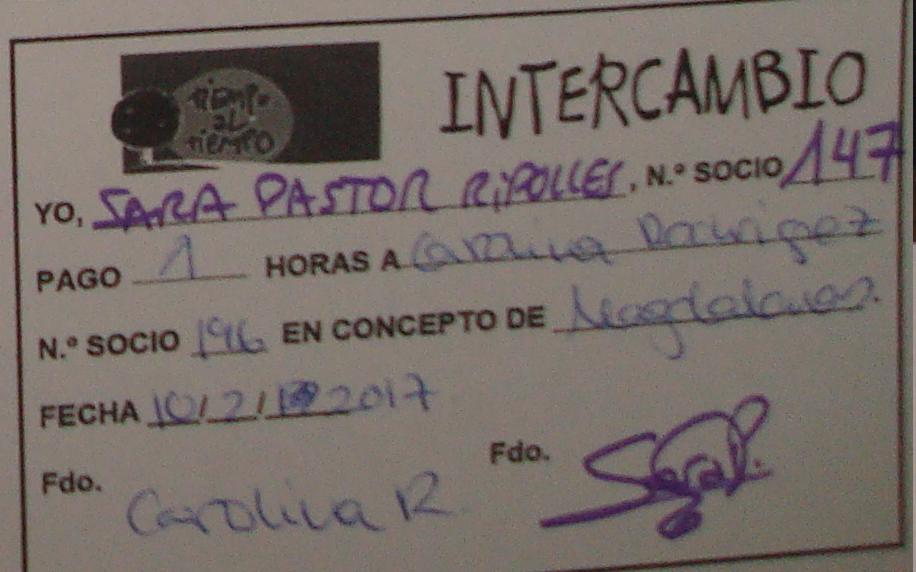 tiempo
al
tiempo
INTERCAMBIO
YO, SARA PASTOR RIPOLLES, N.º SOCIO 147
PAGO 1 HORAS A Carolina Rodriguez
N.º SOCIO 196 EN CONCEPTO DE Magdalenas.
FECHA 10/2/2017
Fdo. Carolina R
Fdo. Sara P.